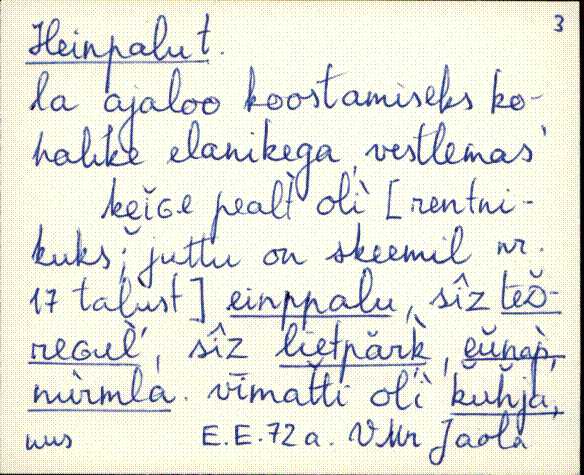 3
Heinpalu t.
la ajaloo koostamiseks ko-
halike elanikega vestlemas
keīɢe pealt̀ olì [rentni-
kuks; juttu on skeemil nr.
17 talust] einppalu, sîz
reɢul̀, sîz lietpärk̀,
nùrmla. vīmatti olì kŭhja,
nus E.E. 72a. VMr Jaola